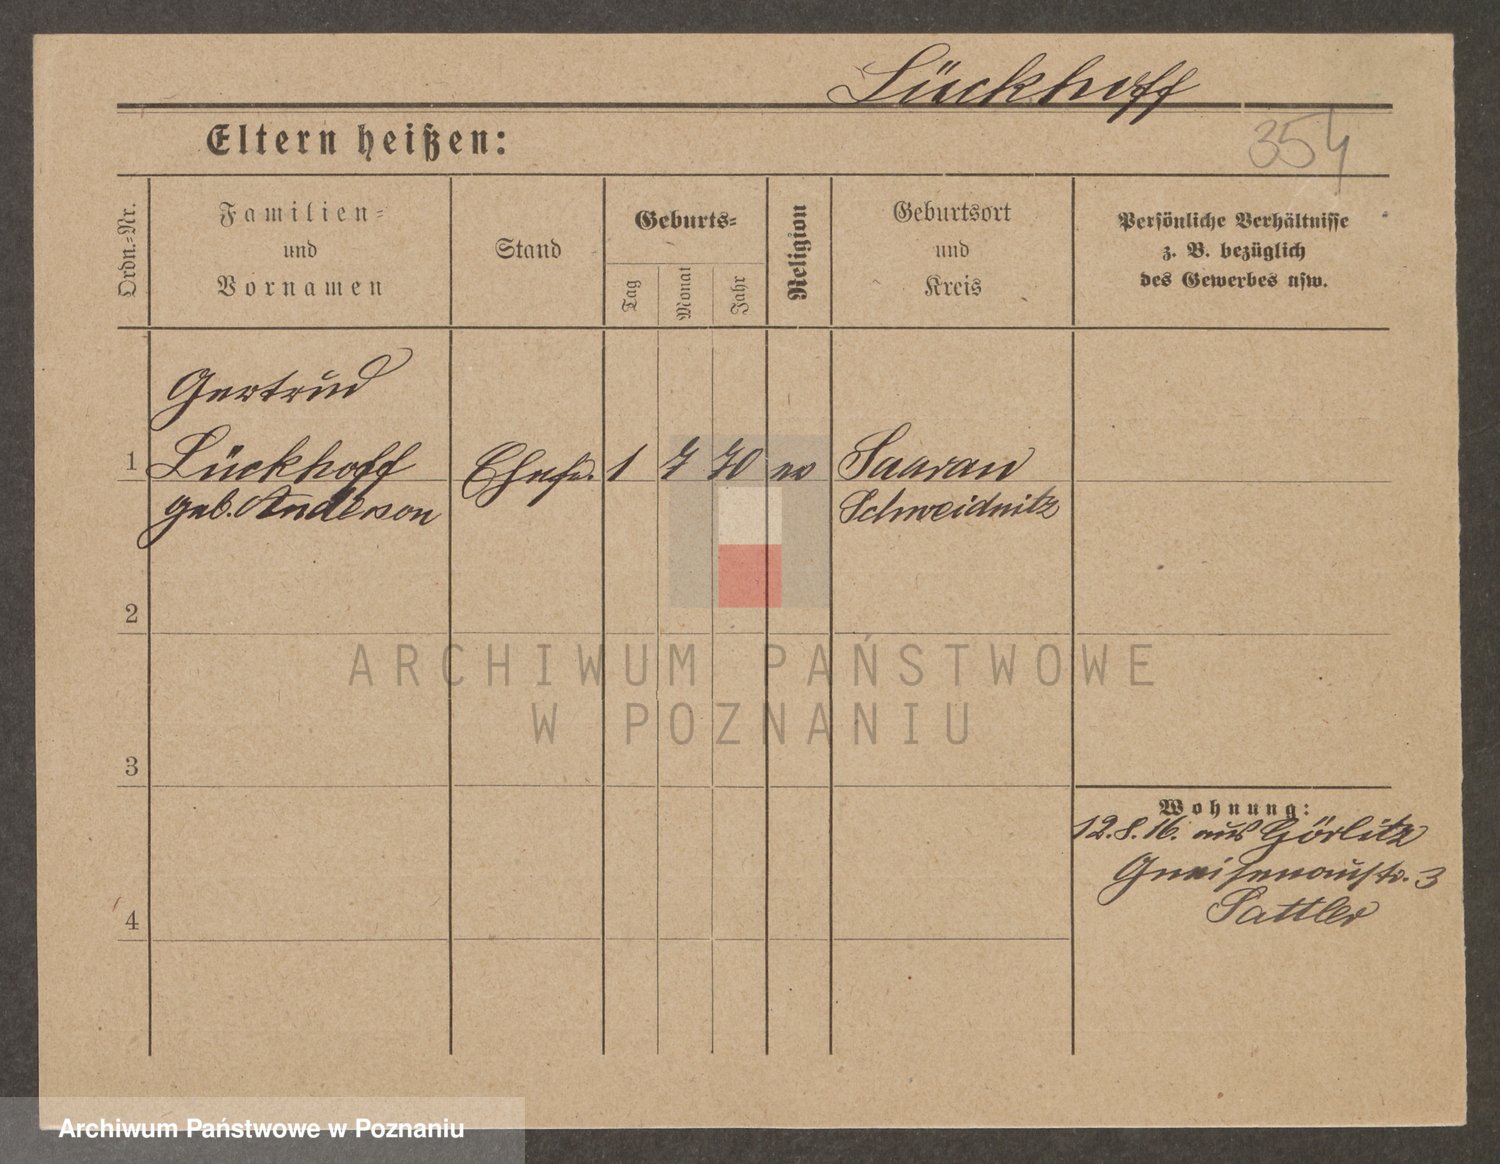 Lückhoff
354
Eltern heißen:
Ordn.-Nr.
Familien-
und
Vornamen
Stand
Geburts-
Tag
Monat
Jahr
Religion
Geburtsort
und
Kreis
Persönliche Verhältnisse
z. B. bezüglich
des Gewerbes usw.
Gertrud
1 Lückhoff Ehefr. 1 7 70 ev Saarau
geb. Anderson Schweidnitz
2
ARCHIWUM PAŃSTWOWE
W POZNANIU
3
Wohnung:
12.8.16. aus Görlitz
Gneisenaustr. 3
Sattler
4
Archiwum Państwowe w Poznaniu